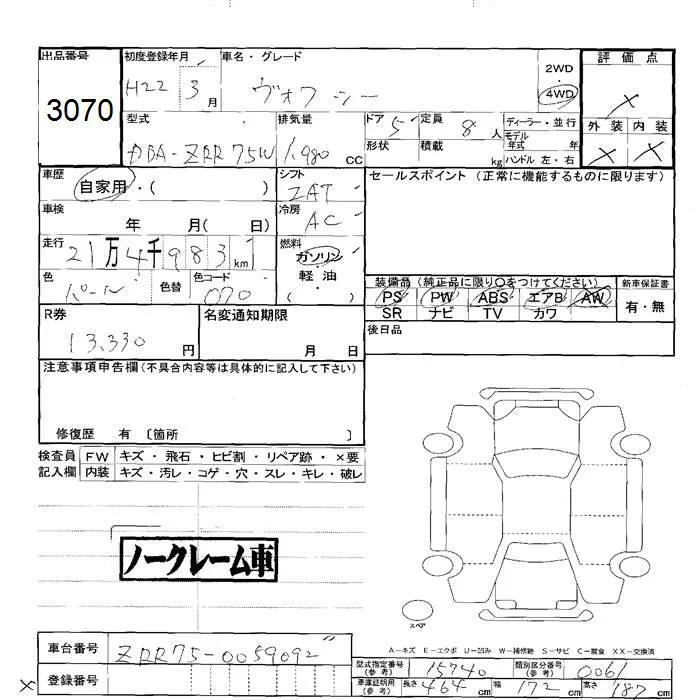 出品番号 初度登録年月 車名・グレード 評価点
3070 H22 3月 ヴォクシー 2WD・4WD X
型式 排気量 ドア 5 定員 8人 ディーラー・並行 外装 内装
DBA-ZRR75W 1,980 cc 形状 積載 kg モデル年式 年 ハンドル 左・右 X X
車歴 自家用・( ) シフト セールスポイント (正常に機能するものに限ります)
ZAT
車検 年 月( 日) 冷房 AC
走行 21万4千983km 燃料 ガソリン・軽油・( )
色 パール 色替 色コード 070
装備品 (純正品に限り○をつけてください) 新車保証書
PS PW ABS エアB AW 有・無
SR ナビ TV カワ
R券 名変通知期限 後日品
13,330円 月 日
注意事項申告欄 (不具合内容等は具体的に記入して下さい)
修復歴 有 〔箇所 〕
検査員 FW キズ・飛石・ヒビ割・リペア跡・×要
記入欄 内装 キズ・汚レ・コゲ・穴・スレ・キレ・破レ
ノークレーム車
スペア
A−キズ E−エクボ U−凹み W−補修跡 S−サビ C−腐食 XX−交換済
車台番号 ZRR75-0059092
型式指定番号 (参考) 15740 類別区分番号 (参考) 0061
× 登録番号 車庫証明用 (参考) 長さ 464 cm 幅 172 cm 高さ 187 cm